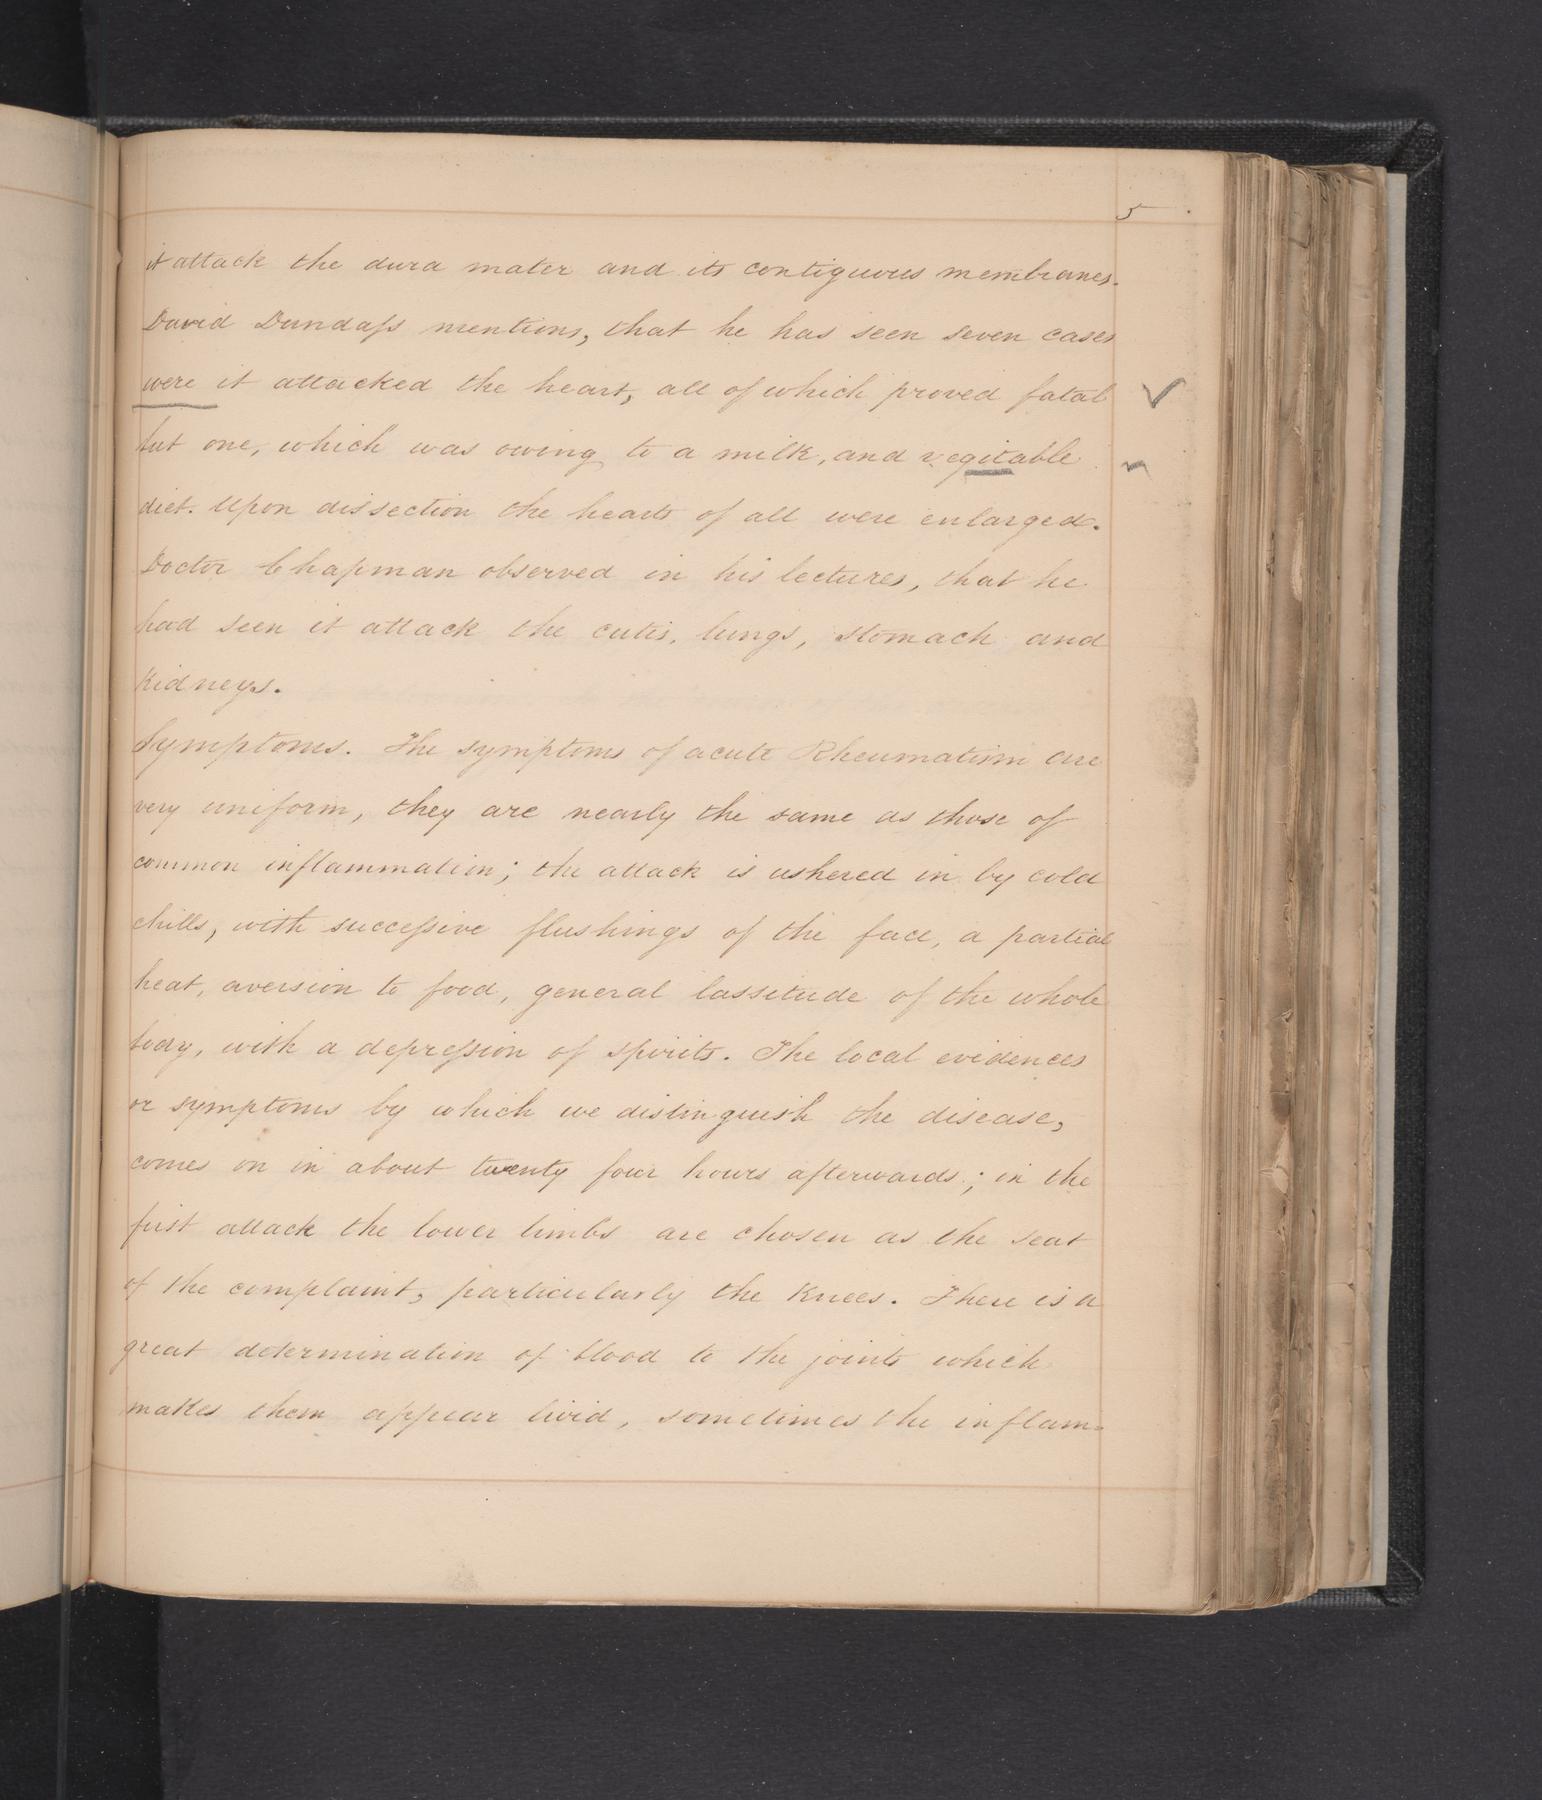 5
it attack the dura mater and its contiguous membranes.
David Dundass mentions, that he has seen seven cases
were it attacked the heart, all of which proved fatal
but one, which was owing to a milk, and vegitable
diet. Upon dissection the hearts of all were enlarged.
Doctor Chapman observed in his lectures, that he
had seen it attack the cutis, lungs, stomach and
kidneys.
Symptoms. The symptoms of acute Rheumatism are
very uniform, they are nearly the same as those of
common inflammation; the attack is ushered in by cold
chills, with successive flushings of the face, a partial
heat, aversion to food, general lassitude of the whole
body, with a depression of spirits. The local evidences
or symptoms by which we distinguish the disease,
comes on in about twenty four hours afterwards; in the
first attack the lower limbs are chosen as the seat
of the complaint, particularly the Knees. There is a
great determination of blood to the joints which
makes them appear livid, sometimes the inflam=